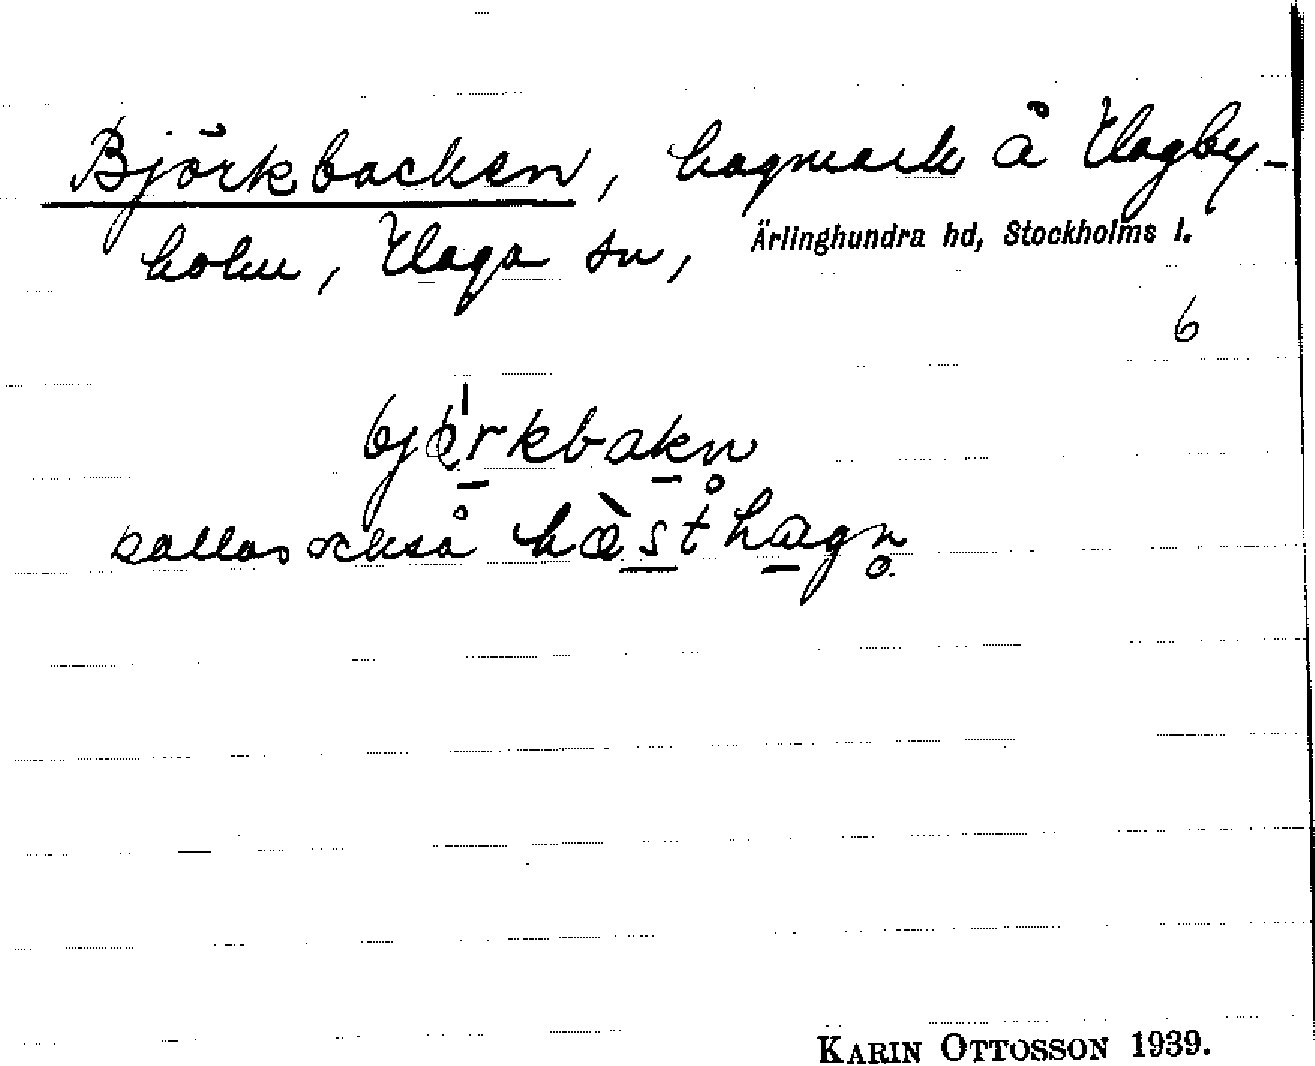 Björkbacken, hagmark å Hagby-
holm, Haga sn, Ärlinghundra hd, Stockholms l.
6
bjørkbakn̥
kallas också hæ̀sthagn̥
KARIN OTTOSSON 1939.